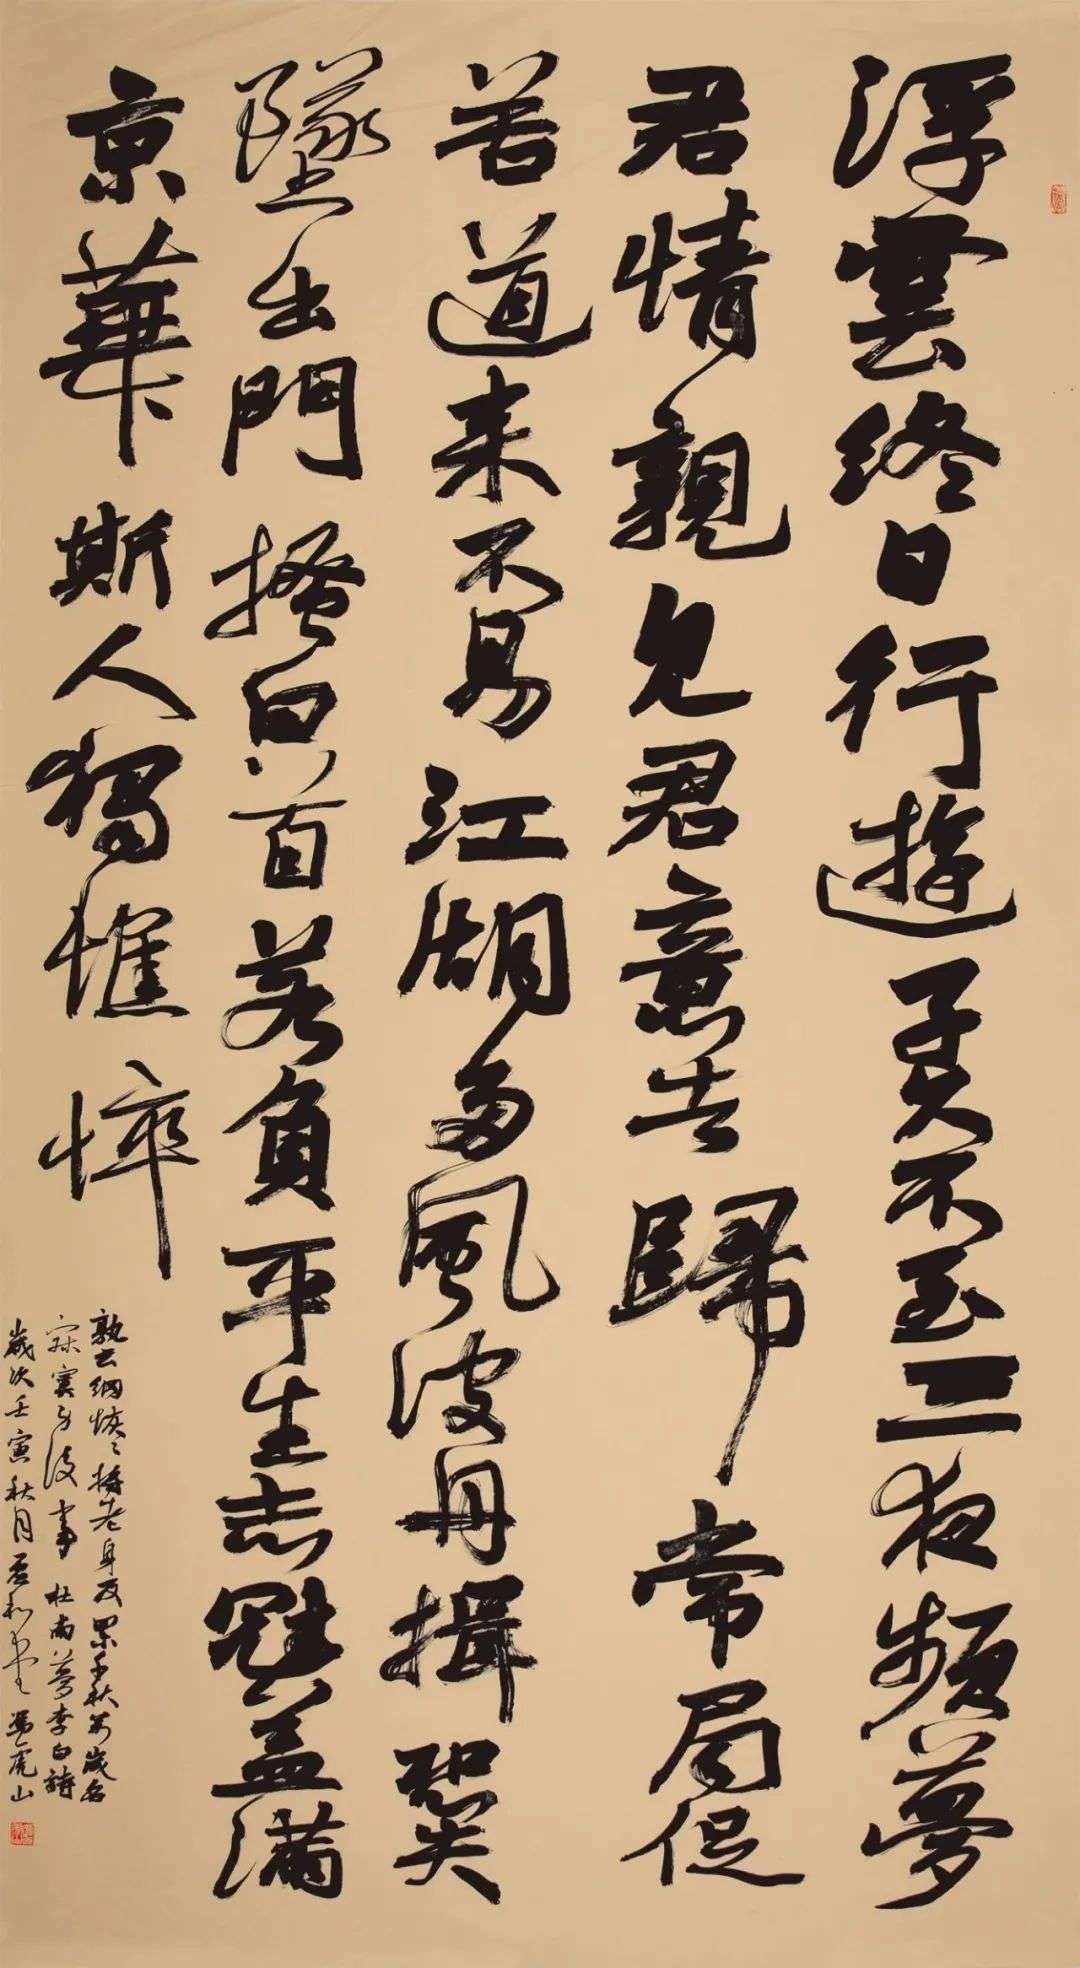 浮雲終日行遊子久不至三夜頻夢
君情親見君意告歸常局促
苦道来不易江湖多風波舟楫恐失
墜出門搔白首若負平生志冠蓋滿
京華斯人獨憔悴
孰云網恢〻将老身反累千秋萬歲名
寂寞身後事 杜甫夢李白詩
歲次壬寅秋月 和堂 馮虎山